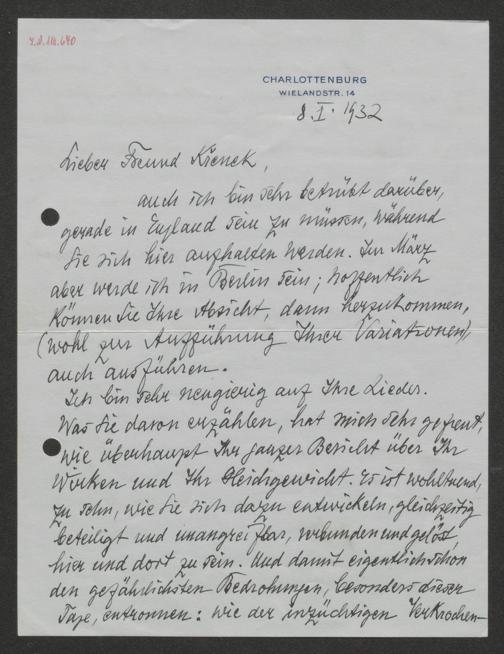 CHARLOTTENBURG
WIELANDSTR. 14
8. I. 1932
Lieber Freund Křenek,
auch ich bin sehr betrübt darüber,
gerade in England sein zu müssen, während
Sie sich hier aufhalten werden. Im März
aber werde ich in Berlin sein; hoffentlich
können Sie Ihre Absicht, dann herzukommen,
(wohl zur Aufführung Ihrer Variationen),
auch ausführen.
Ich bin sehr neugierig auf Ihre Lieder.
Was Sie davon erzählen, hat mich sehr gefreut,
wie überhaupt Ihr ganzer Bericht über Ihr
Wirken und Ihr Gleichgewicht. Es ist wohltuend,
zu sehn, wie Sie sich dazu entwickeln, gleichzeitig
beteiligt und unangreifbar, verbunden und gelöst,
hier und dort zu sein. Und damit eigentlich schon
den gefährlichsten Bedrohungen, besonders dieser
Tage, entronnen: wie der inzüchtigen Verkrochen-